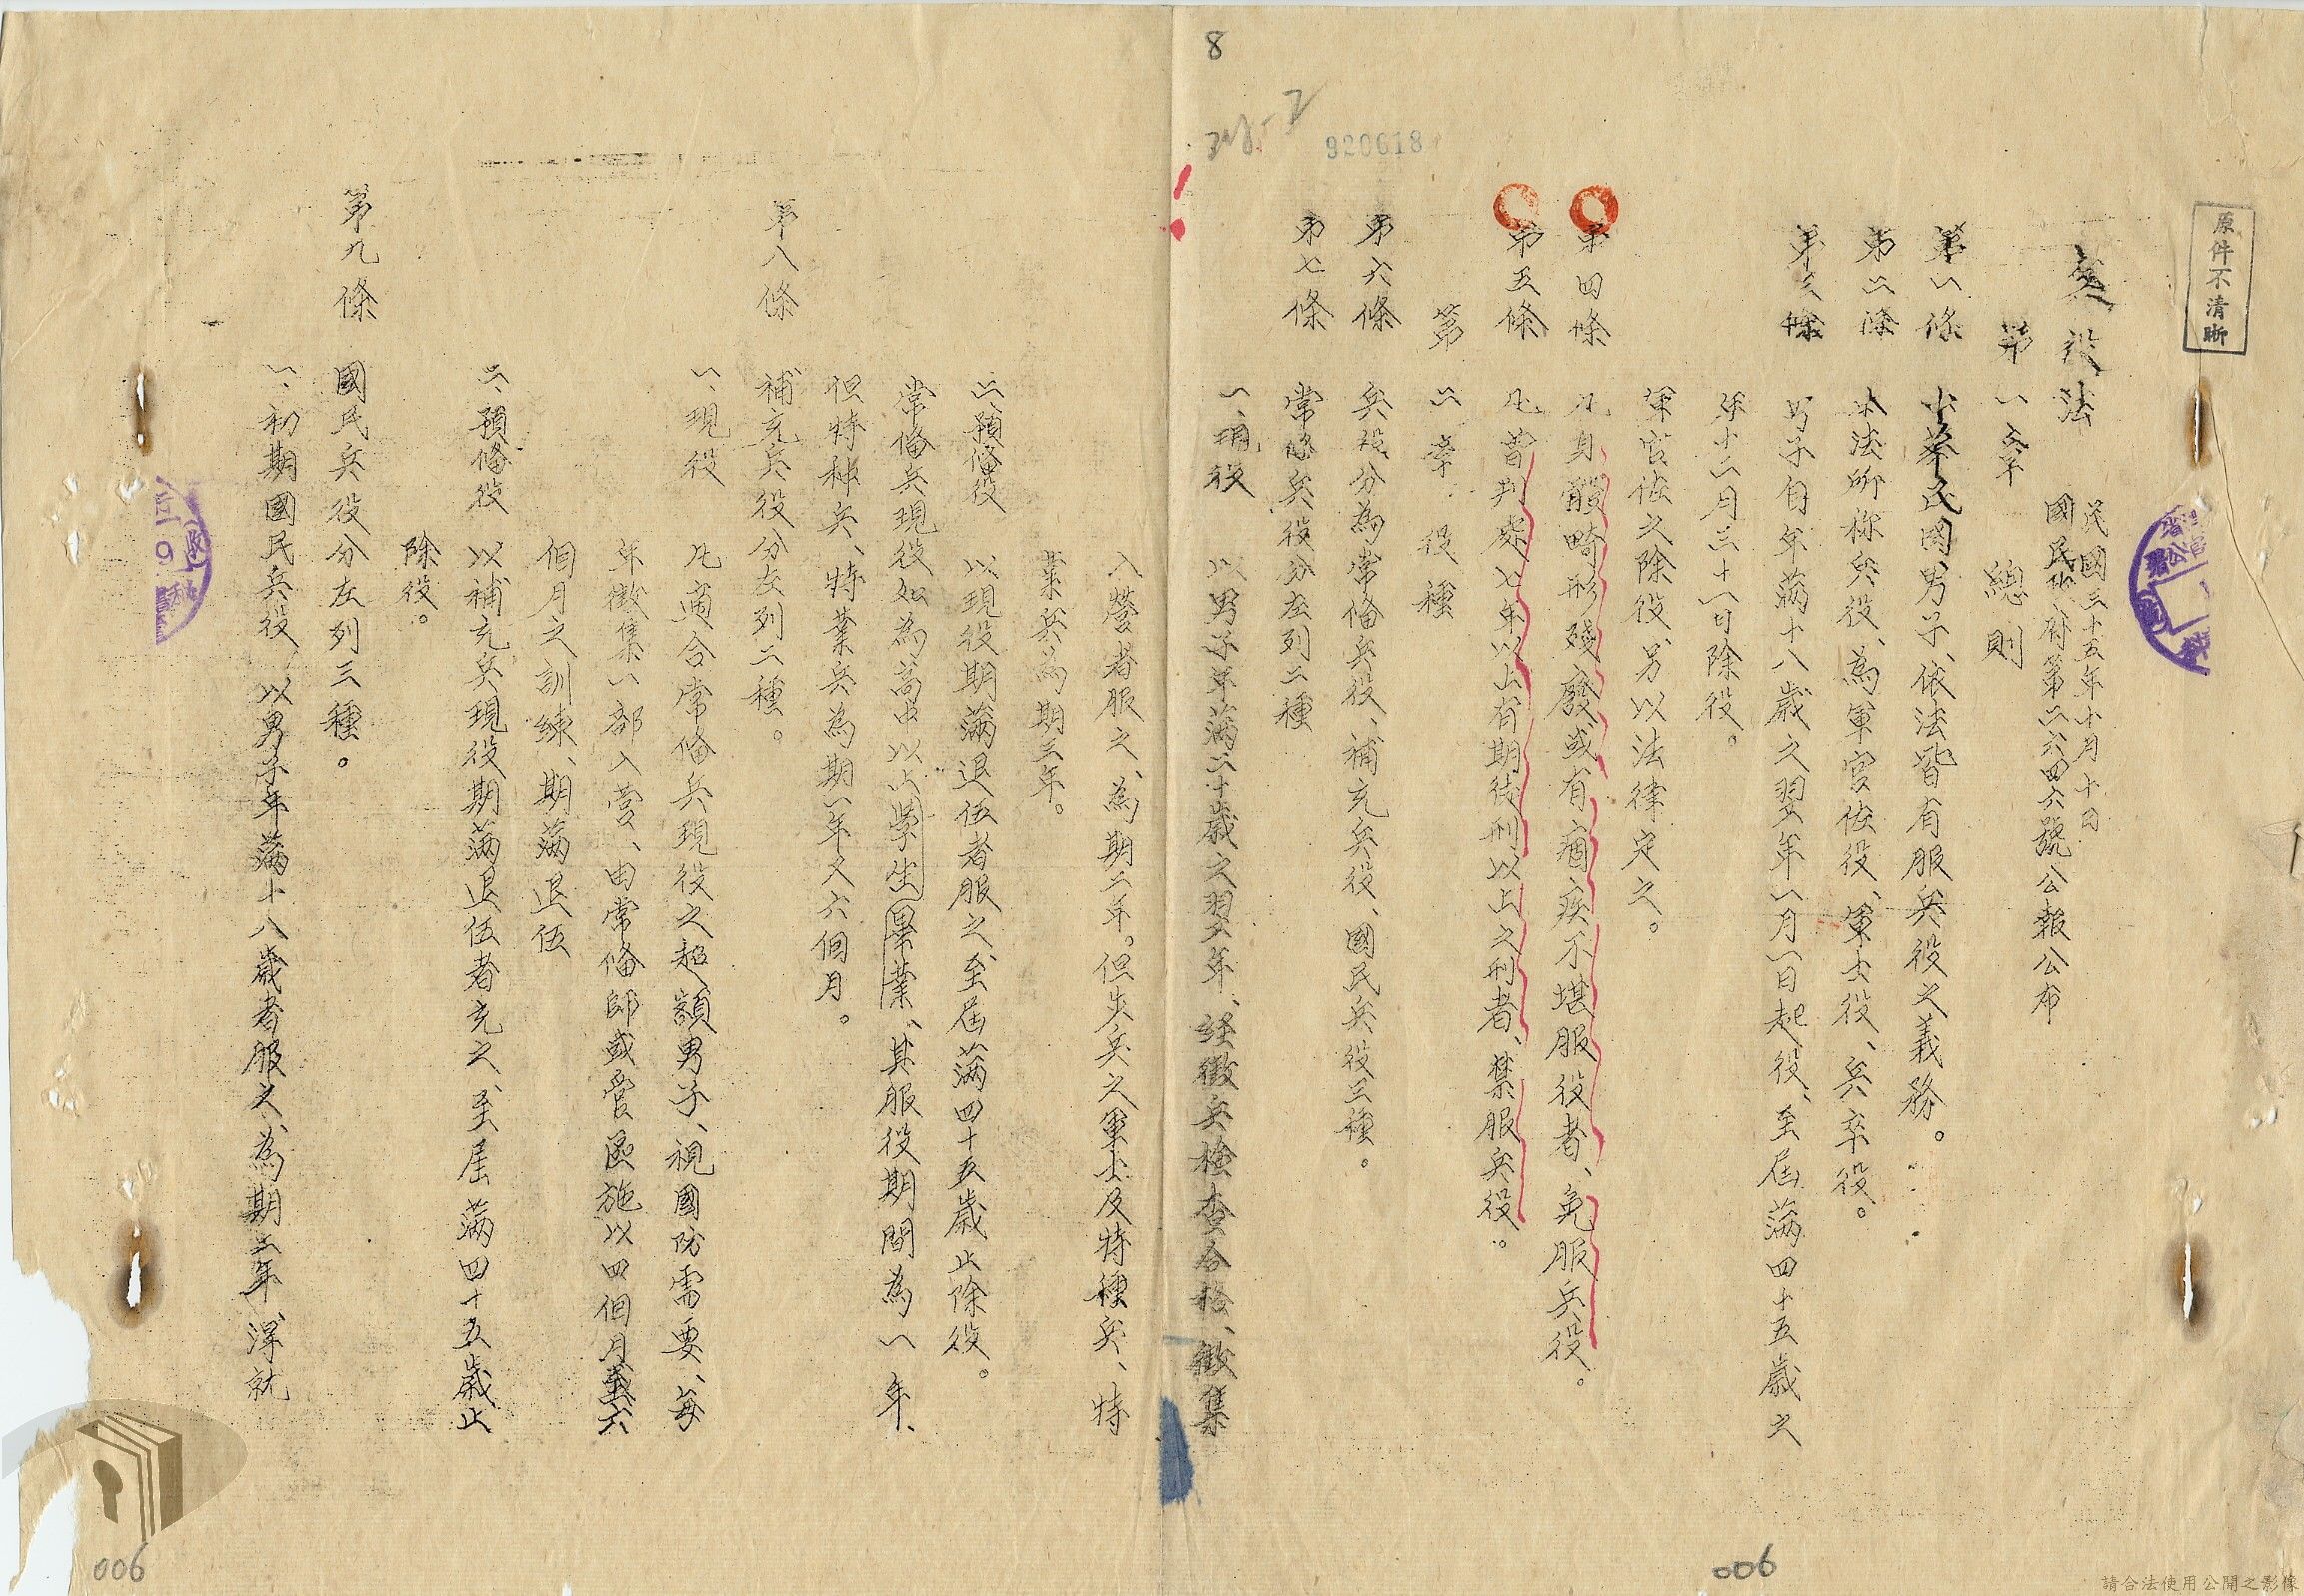 原件不清晰
兵役法
民國三十五年十月十日
國民政府第二六四六號公報公布
第一章 總則
第一條 中華民國男子、依法皆有服兵役之義務。
第二條 本法所称兵役、為軍官佐役、軍士役、兵卒役。
第三條 男子自年滿十八歲之翌年一月一日起役、至屆滿四十五歲之
年十二月三十一日除役。
軍官佐之除役另以法律定之。
第四條 凡身體畸形殘廢或有痼疾不堪服役者、免服兵役。
第五條 凡曾判處七年以上有期徒刑以上之刑者、禁服兵役。
第二章 役種
第六條 兵役分為常俻兵役、補充兵役、國民兵役三種。
第七條 常俻兵役分左列二種
一、現役 以男子年滿二十歲之翌年、経徵兵檢查合格、徵集
入營者服之、為期二年。但步兵之軍士及特種兵、特
業兵為期三年。
二、預俻役 以現役期滿退伍者服之、至屆滿四十五歲止除役。
常俻兵現役如為高中以上學生畢業、其服役期間為一年、
但特种兵、特業兵為期一年又六個月。
第八條 補充兵役分左列二種。
一、現役 凡適合常俻兵現役之超額男子、視國防需要、每
年徵集一部入营、由常俻師或管區施以四個月至六
個月之訓練、期滿退伍
二、預俻役 以補充兵現役期滿退伍者充之、至屆滿四十五歲止
除役。
第九條 國民兵役分左列三種。
一、初期國民兵役 以男子年滿十八歲者服之、為期二年、
就
8
920618
006
006
請合法使用公開之影像